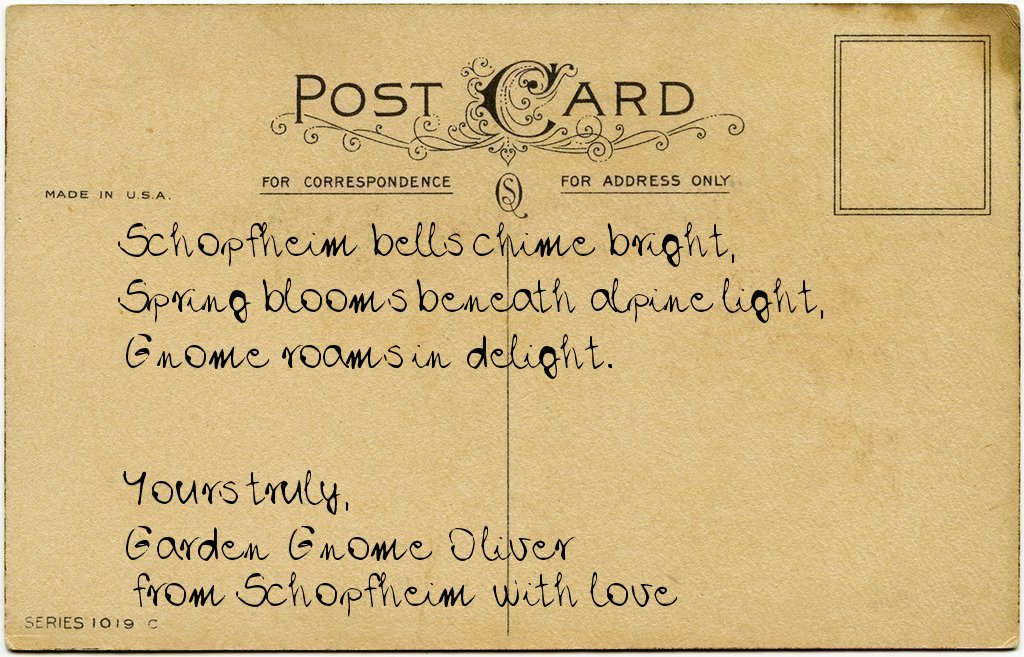 POST CARD
FOR CORRESPONDENCE
FOR ADDRESS ONLY
MADE IN U.S.A.
Schopfheim bells chime bright,
Spring blooms beneath alpine light,
Gnome roams in delight.
Yours truly,
Garden Gnome Oliver
from Schopfheim with love
SERIES 1019 C